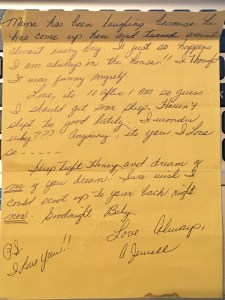 Mama has been laughing because he
has come up here and turned around
almost every day. I just so happens
I am always in the house!! I thought
It was funny myself.
Love, its 10 after 1 AM so guess
I should get some sleep. Haven't
slept to good lately. I wonder
why??? Anyway, its you I love
so -----
Sleep Tight Honey and dream of
me if you dream! Sure wish I
could scoot up to your back right
now. Goodnight Baby.
Love Always,
A Jewell
P.S.
I Love You!!